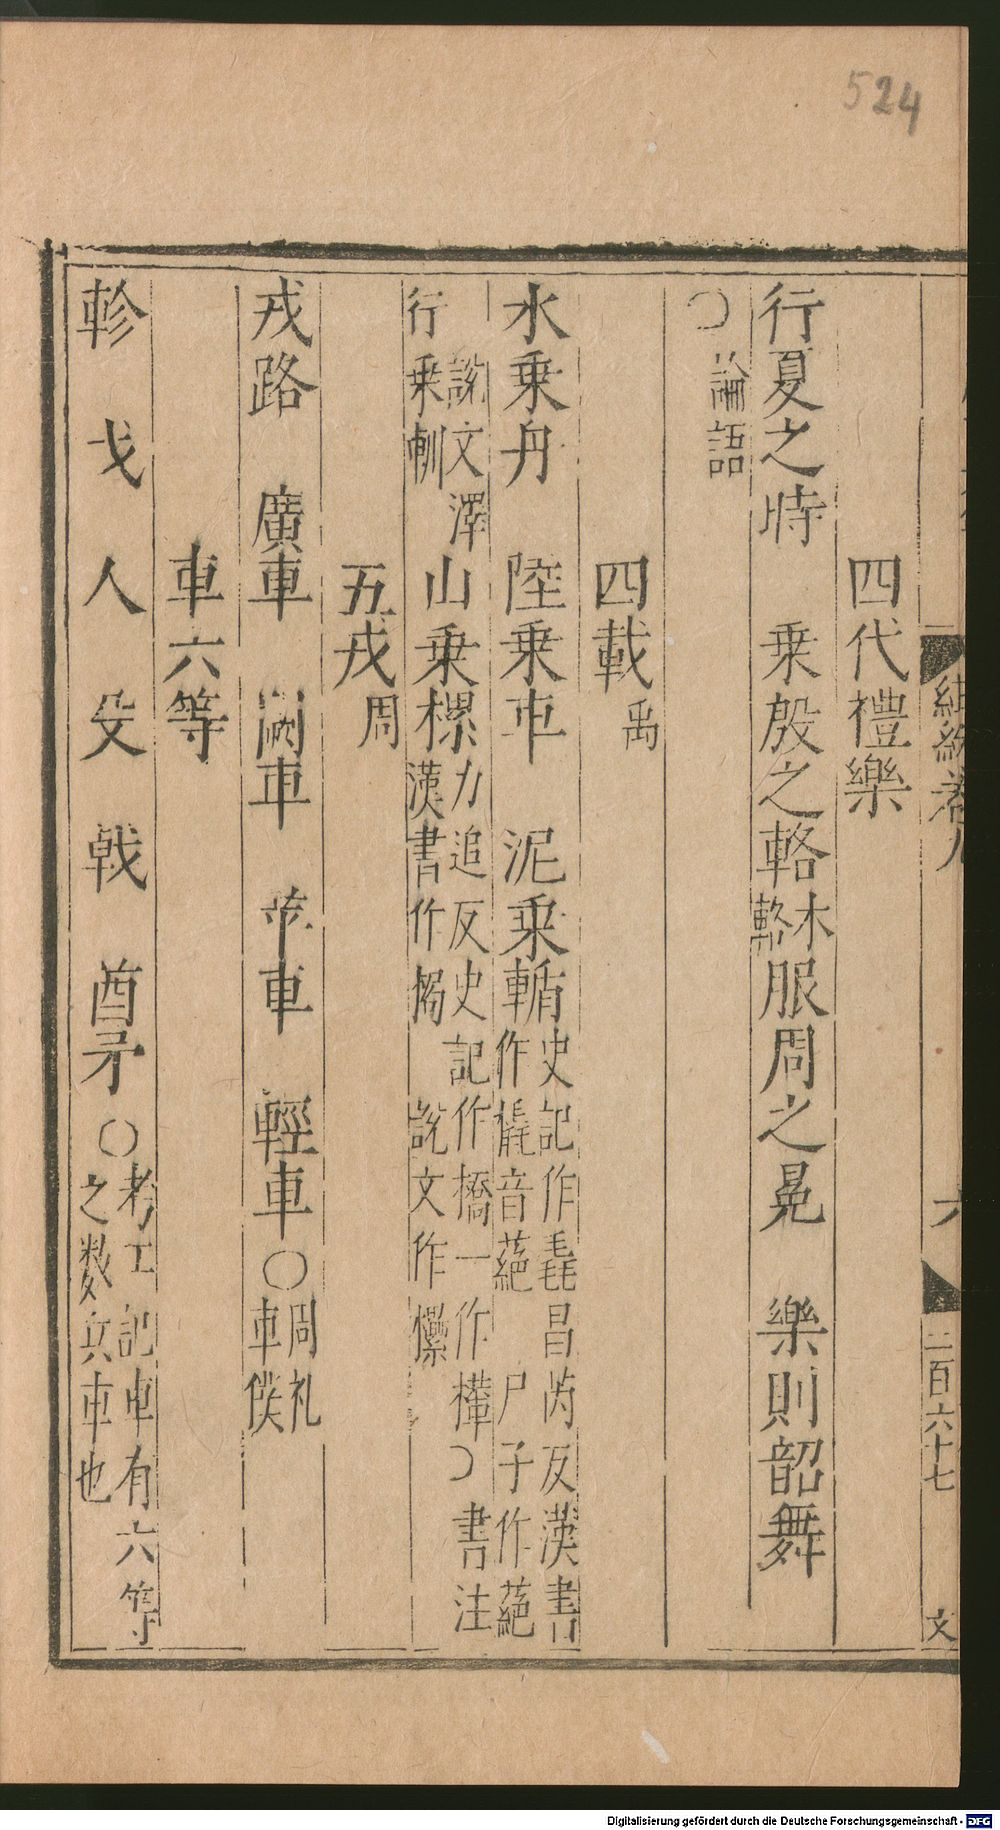 524
四代禮樂
行夏之時 乗殷之輅木輅服周之冕 樂則韶舞
〇論語
四載禹
水乗舟 陸乗車 泥乗輴史記作毳昌芮反漢書作橇音蕝 尸子作蕝
行乗軓說文澤山乗樏力追反史記作橋一作檋〇書注漢書作梮 說文作欙
五戎周
戎路 廣車 闕車 苹車 輕車〇周礼車僕
車六等
軫 戈 人 殳 戟 酋矛〇考工記車有六等之数兵車也
卷九
六
二百六十七
文
Digitalisierung gefördert durch die Deutsche Forschungsgemeinschaft - DFG